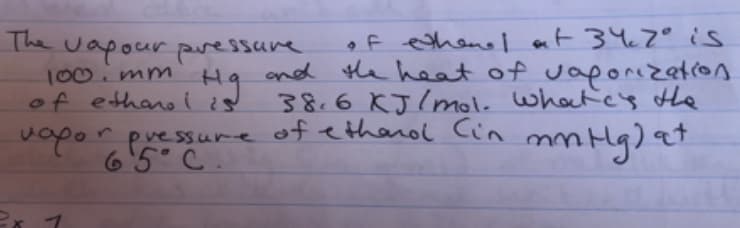 The vapour pressure of ethanol at 34.7° is
100. mm Hg and the heat of vaporization
of ethanol is 38.6 KJ/mol. What is the
vapor pressure of ethanol (in mmHg) at
65° C.
Ex 1